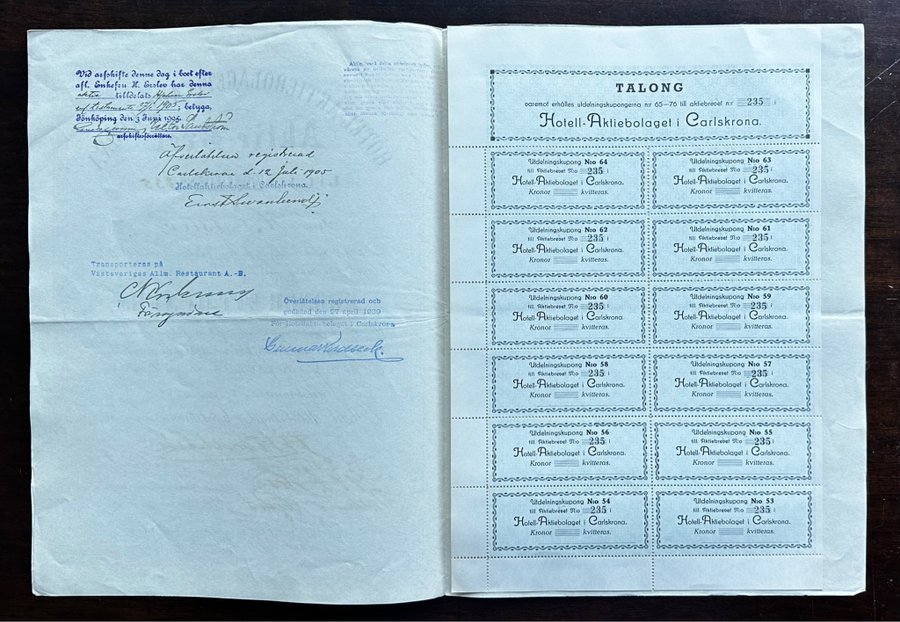 Vid arfskifte denne dag i boet efter
afl. Enkefru H. Erslev har denna
aktie tilldelats
1905, betyga,
Jönköping den 3 Juni 1905.
arfskiftesförrättare.
Afverlåtelsen registrerad
Carlskrona d. 12 Juli 1905
Hotellaktiebolaget i Carlskrona.
Transporteras på
Västsveriges Allm. Restaurant A.-B.
Överlåtelsen registrerad och
godkänd den 27 april 1939
För Hotellaktiebolaget i Carlskrona
TALONG
varemot erhålles utdelningskupongerna nr 65–76 till aktiebrevet nr 235 i
Hotell-Aktiebolaget i Carlskrona.
Utdelningskupong N:o 64
till Aktiebrevet N:o 235 i
Hotell-Aktiebolaget i Carlskrona.
Kronor kvitteras.
Utdelningskupong N:o 63
till Aktiebrevet N:o 235 i
Hotell-Aktiebolaget i Carlskrona.
Kronor kvitteras.
Utdelningskupong N:o 62
till Aktiebrevet N:o 235 i
Hotell-Aktiebolaget i Carlskrona.
Kronor kvitteras.
Utdelningskupong N:o 61
till Aktiebrevet N:o 235 i
Hotell-Aktiebolaget i Carlskrona.
Kronor kvitteras.
Utdelningskupong N:o 60
till Aktiebrevet N:o 235 i
Hotell-Aktiebolaget i Carlskrona.
Kronor kvitteras.
Utdelningskupong N:o 59
till Aktiebrevet N:o 235 i
Hotell-Aktiebolaget i Carlskrona.
Kronor kvitteras.
Utdelningskupong N:o 58
till Aktiebrevet N:o 235 i
Hotell-Aktiebolaget i Carlskrona.
Kronor kvitteras.
Utdelningskupong N:o 57
till Aktiebrevet N:o 235 i
Hotell-Aktiebolaget i Carlskrona.
Kronor kvitteras.
Utdelningskupong N:o 56
till Aktiebrevet N:o 235 i
Hotell-Aktiebolaget i Carlskrona.
Kronor kvitteras.
Utdelningskupong N:o 55
till Aktiebrevet N:o 235 i
Hotell-Aktiebolaget i Carlskrona.
Kronor kvitteras.
Utdelningskupong N:o 54
till Aktiebrevet N:o 235 i
Hotell-Aktiebolaget i Carlskrona.
Kronor kvitteras.
Utdelningskupong N:o 53
till Aktiebrevet N:o 235 i
Hotell-Aktiebolaget i Carlskrona.
Kronor kvitteras.